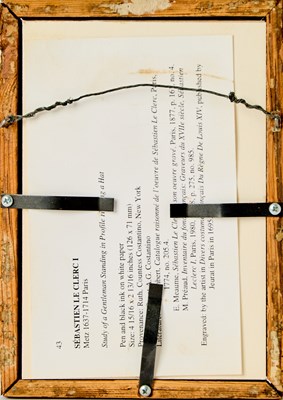 43
SÉBASTIEN LE CLERC I
Metz 1637-1714 Paris
Study of a Gentleman Standing in Profile a Hat
Pen and black ink on white paper
Size: 4 15/16 x 2 13/16 inches (126 x 71 mm)
Provenance: Ruth, Countess Costantino, New York
A.G. Costantino
Catalogue raisonné de l'oeuvre de Sébastien Le Clerc, Paris,
1774, no. 205.4.
E. Meaume, Sébastien Le Cl son oeuvre gravé, Paris, 1877, p. 161, no. 4.
M. Préaud, Inventaire du fon Graveurs du XVIIe siècle, Sébastien
Leclerc I, Paris, 1980, p. 275, no. 985.
Engraved by the artist in Divers costum Français Du Règne De Louis XIV, published by
Jeurat in Paris in 1695